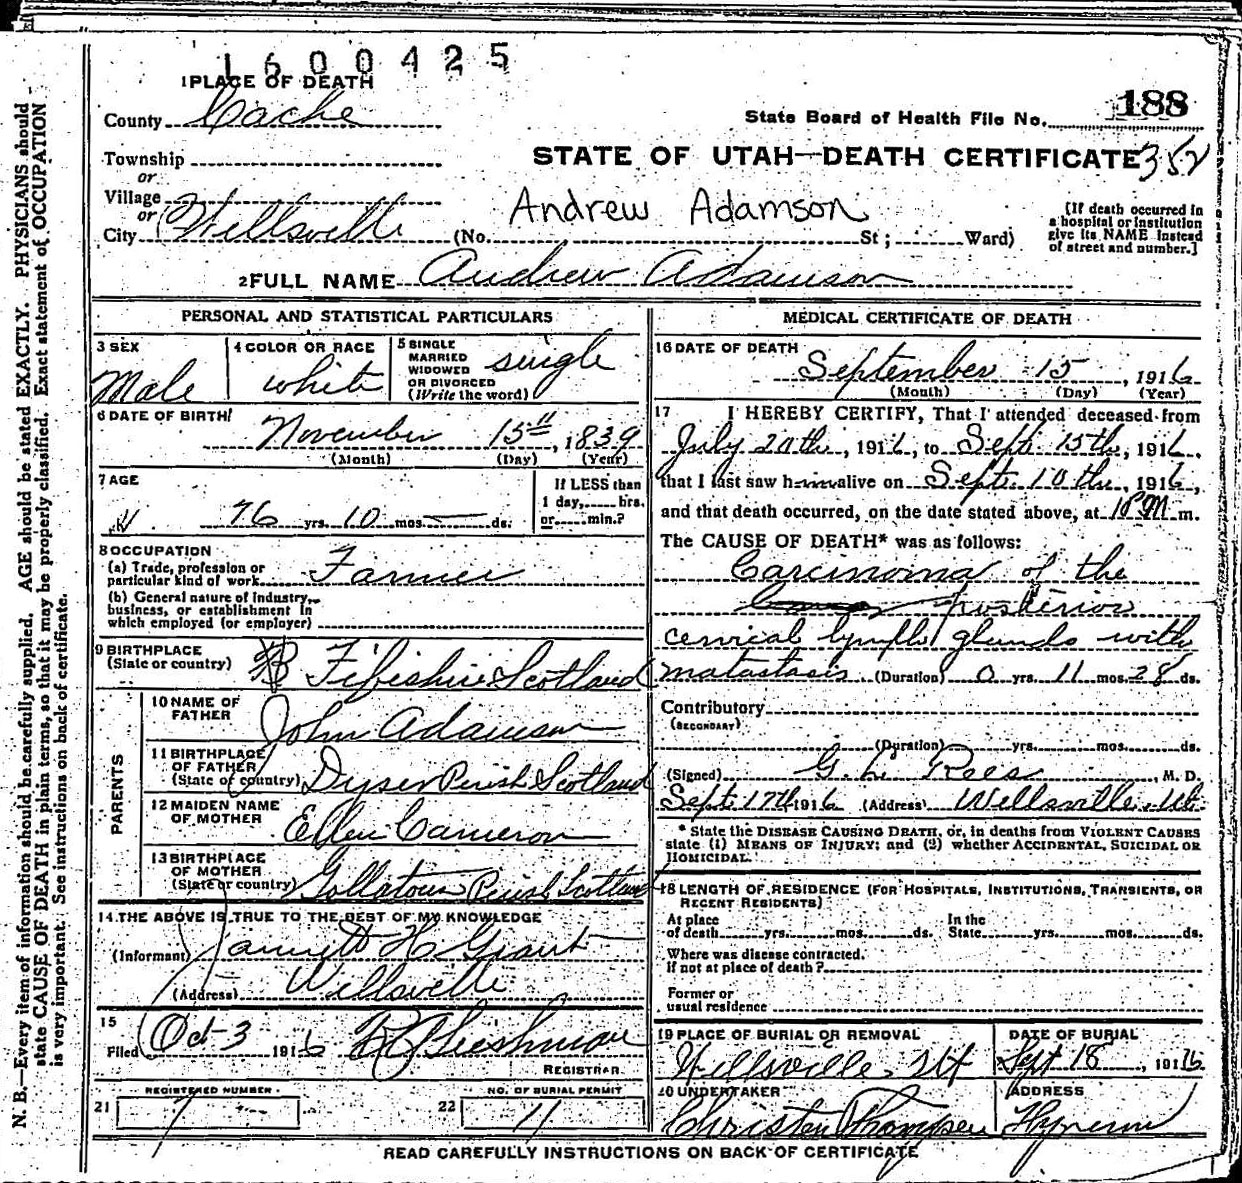 1600425
1 PLACE OF DEATH
County Cache
188
State Board of Health File No.
Township
or
STATE OF UTAH—DEATH CERTIFICATE 352
Village
or
Andrew Adamson
City Wellsville (No. St; Ward)
[If death occurred in
a hospital or institution
give its NAME instead
of street and number.]
2 FULL NAME Andrew Adamson
PERSONAL AND STATISTICAL PARTICULARS
3 SEX
Male
4 COLOR OR RACE
white
5 SINGLE
MARRIED
WIDOWED
OR DIVORCED
(Write the word)
single
6 DATE OF BIRTH
November 15th, 1839
(Month) (Day) (Year)
7 AGE
76 yrs. 10 mos. — ds.
If LESS than
1 day, hrs.
or min.?
8 OCCUPATION
(a) Trade, profession or
particular kind of work Farmer
(b) General nature of Industry,
business, or establishment in
which employed (or employer)
9 BIRTHPLACE
(State or country) Fifishire Scotland
PARENTS
10 NAME OF
FATHER John Adamson
11 BIRTHPLACE
OF FATHER
(State or country) Dyser Perish Scotland
12 MAIDEN NAME
OF MOTHER Ellen Cameron
13 BIRTHPLACE
OF MOTHER
(State or country) Gollatown Perish Scotland
14 THE ABOVE IS TRUE TO THE BEST OF MY KNOWLEDGE
(Informant) H Grant
(Address) Wellsville
15
Filed Oct 3 1916
REGISTRAR
REGISTERED NUMBER
21 7
NO. OF BURIAL PERMIT
22 11
MEDICAL CERTIFICATE OF DEATH
16 DATE OF DEATH
September 15, 1916
(Month) (Day) (Year)
17 I HEREBY CERTIFY, That I attended deceased from
July 20th, 1916, to Sept. 15th, 1916,
that I last saw him alive on Sept. 10th, 1916,
and that death occurred, on the date stated above, at 10 PM m.
The CAUSE OF DEATH* was as follows:
Carcinoma of the
posterior
cervical lymph glands with
matastasis (Duration) 0 yrs. 11 mos. 28 ds.
Contributory
(SECONDARY)
(Duration) yrs. mos. ds.
(Signed) G. L. Rees, M. D.
Sept. 17th 1916 (Address) Wellsville, Ut.
* State the DISEASE CAUSING DEATH, or, in deaths from VIOLENT CAUSES
state (1) MEANS OF INJURY; and (2) whether ACCIDENTAL, SUICIDAL OR
HOMICIDAL.
18 LENGTH OF RESIDENCE (FOR HOSPITALS, INSTITUTIONS, TRANSIENTS, OR
RECENT RESIDENTS)
At place In the
of death yrs. mos. ds. State yrs. mos. ds.
Where was disease contracted.
If not at place of death?
Former or
usual residence
19 PLACE OF BURIAL OR REMOVAL
Wellsville, Ut
DATE OF BURIAL
Sept 18, 1916
20 UNDERTAKER
Christen Thompsen
ADDRESS
Hyrum
READ CAREFULLY INSTRUCTIONS ON BACK OF CERTIFICATE
N. B.—Every item of information should be carefully supplied. AGE should be stated EXACTLY. PHYSICIANS should
state CAUSE OF DEATH in plain terms, so that it may be properly classified. Exact statement of OCCUPATION
is very important. See instructions on back of certificate.